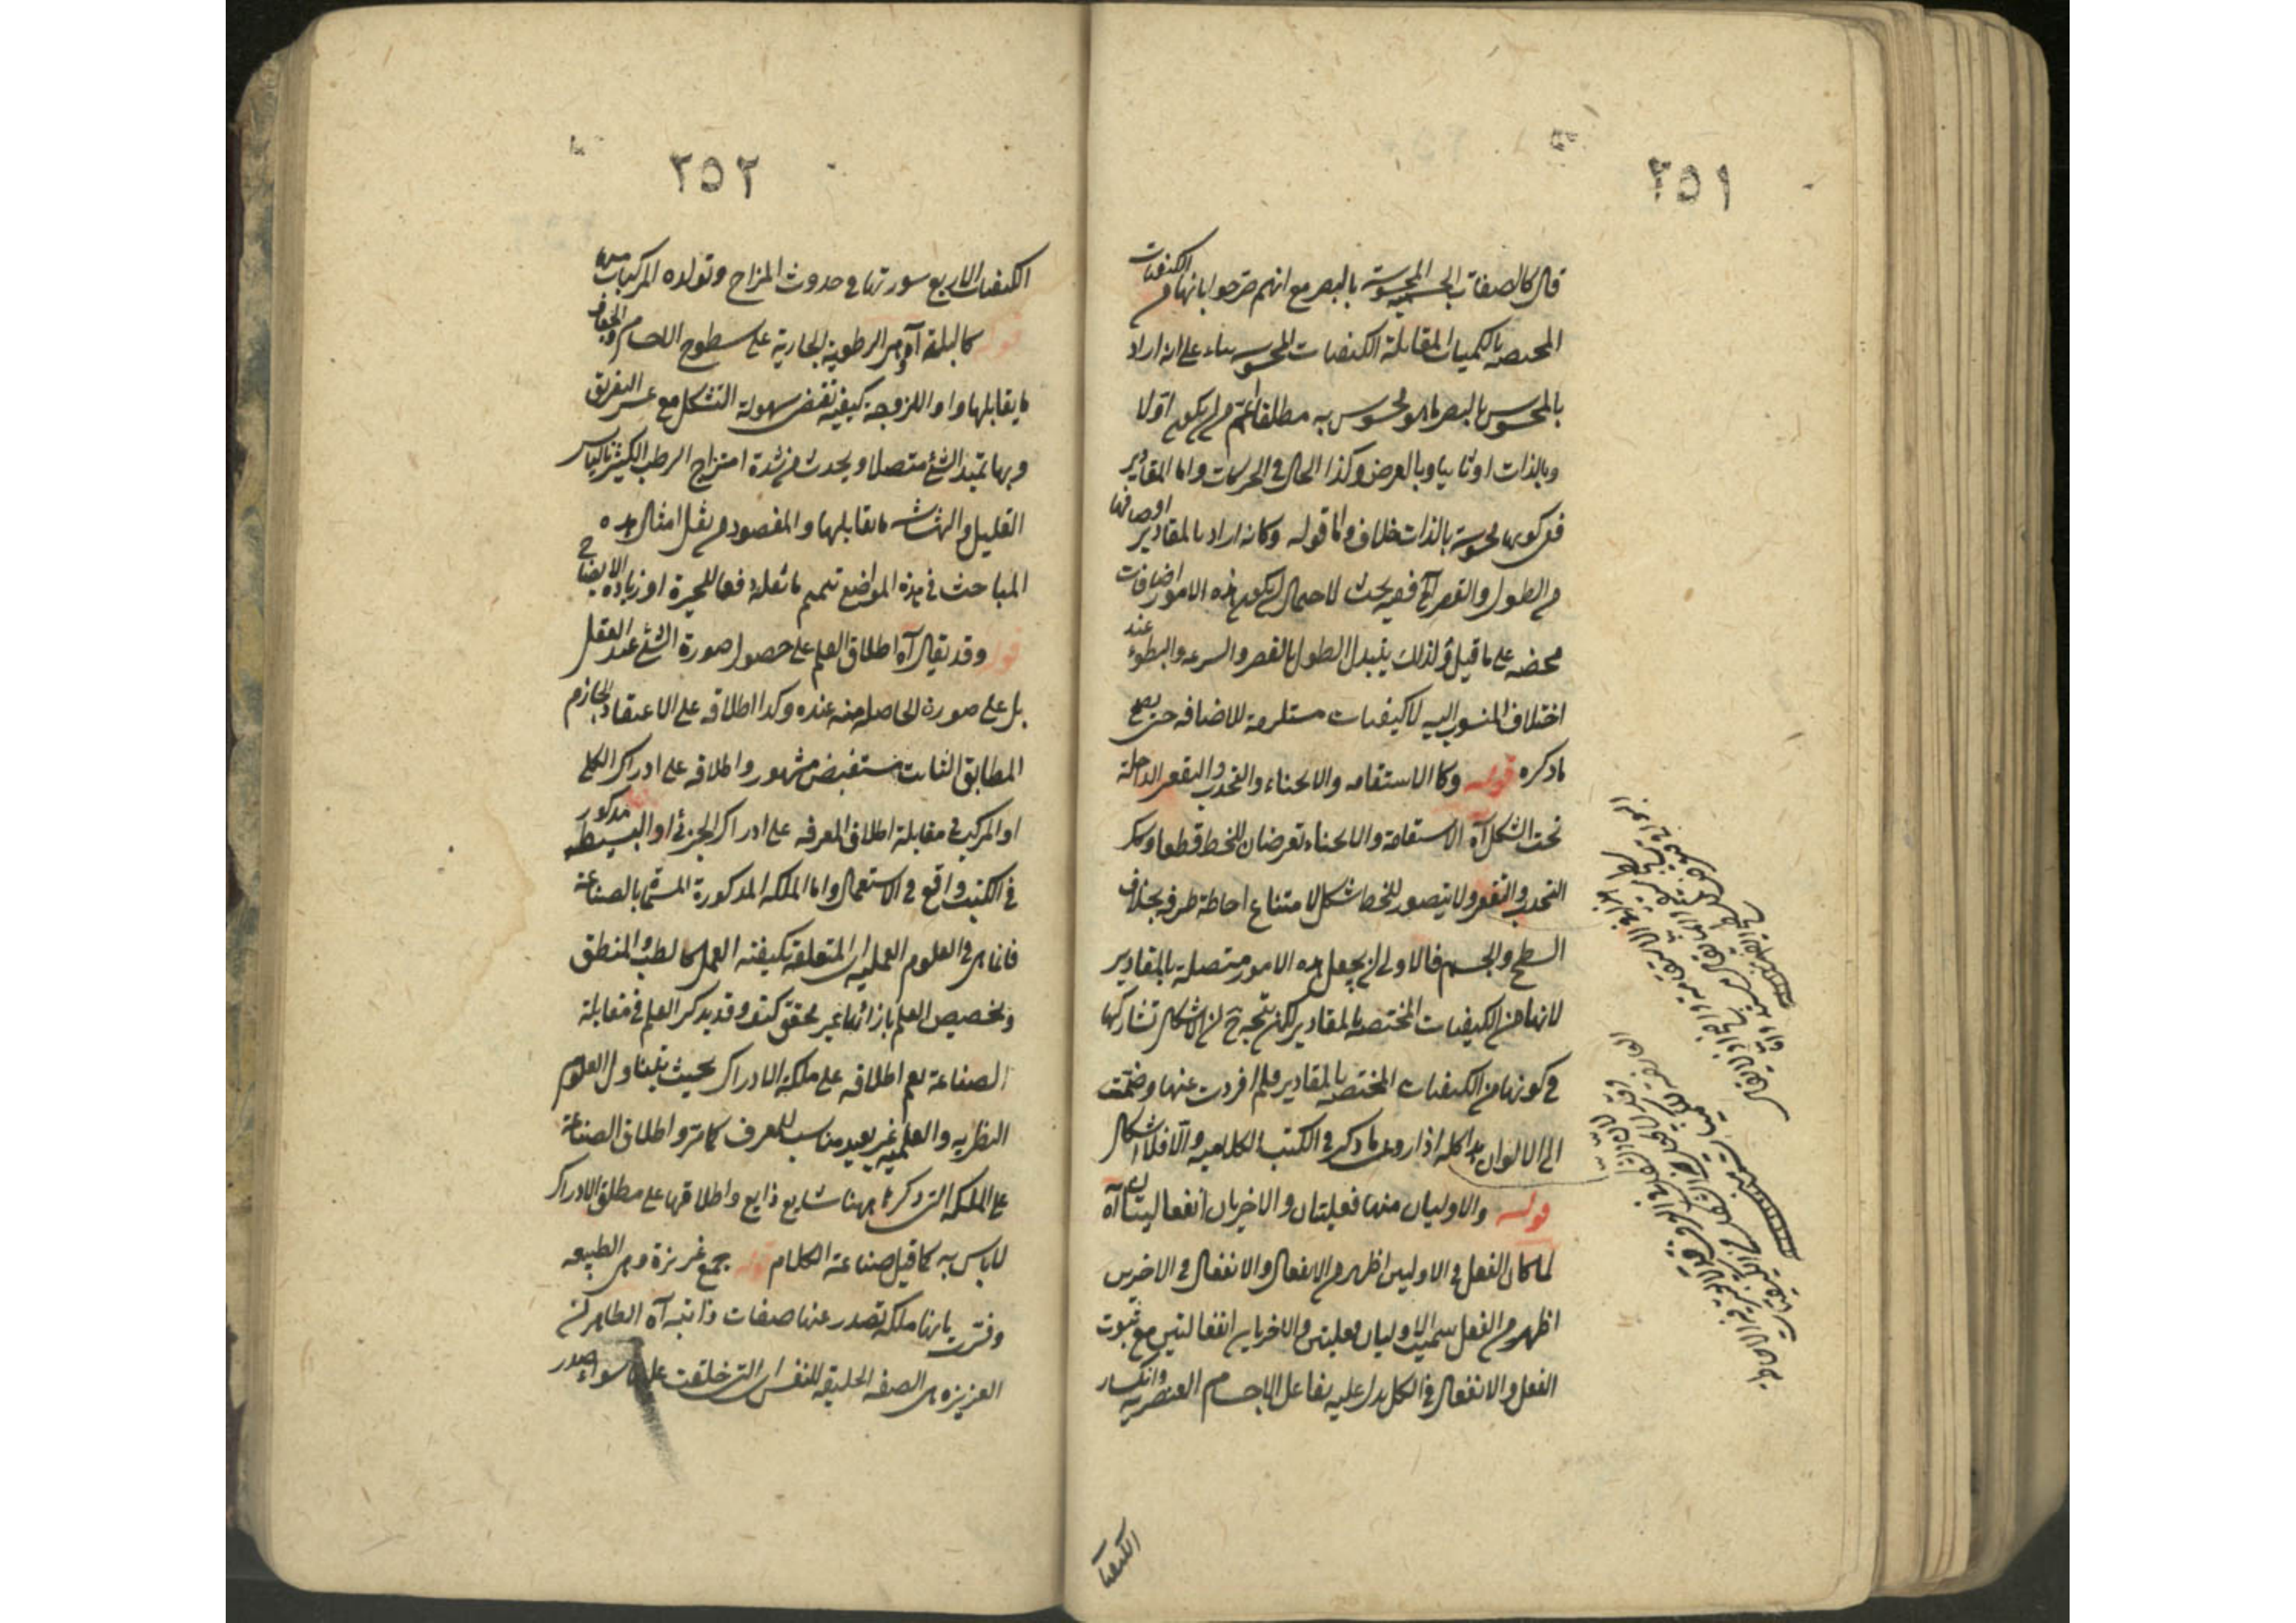 ٢٥١
قال كالصفات الحسية المحسوسة بالبصر مع انهم صرحوا بانها من الكيفيات
المختصة بالكميات المقابلة الكيفيات المحسوسة بناء على انه اراد
بالمحسوس بالبصر ما هو محسوس به مطلقا اعم من ان يكون اولا
وبالذات او ثانيا وبالعرض وكذا الحال في الحركات واما المقادير
ففي كونها محسوسة بالذات خلاف واما قوله وكانه اراد بالمقادير اوصافها
من الطول والقصر آه ففيه بحث لاحتمال ان يكون هذه الامور اضافات
محضه على ما قيل ولذلك يتبدل الطول بالقصر والسرعه والبطوء عند
اختلاف المنسوب اليه لا كيفيات مستلزمة للاضافه حتى يصح
ما ذكره قوله وكالاستقامه والانحناء والتحدب والتقعر الداخلة
تحت الشكل آه الاستقامة والانحناء تعرضان للخط قطعا وكذا
التحدب والتقعر ولا يتصور للخط شكل لامتناع احاطة طرفه بخلاف
السطح والجسم فالاولى ان يجعل هذه الامور متصلة بالمقادير
لانها من الكيفيات المختصة بالمقادير لكن يتجه ح ان الاشكال تشاركها
في كونها من الكيفيات المختصه بالمقادير فلم افردت عنها وضمت
الى الالوان هذا كله اذا روعى ما ذكر في الكتب الكلاميه والا فلا اشكال
قوله والاوليان منها فعليتان والاخريان انفعاليتان آه
لما كان الفعل في الاوليين اظهر من الانفعال والانفعال في الاخريين
اظهر من الفعل سميت الاوليان فعليتين والاخريان انفعاليتين مع ثبوت
الفعل والانفعال في الكل يدل عليه تفاعل الاجسام العنصريه وانكسار
الكيفيات
٢٥٢
الكيفيات الاربع سورتها في حدوث المزاج وتولد المركبات منها
قوله كالبلة آه وهي الرطوبة الجارية على سطوح الاجسام والجفاف
ما يقابلها واللزوجة كيفية تقتضى سهولة التشكل مع عسر التفريق
وبها يمتد الشئ متصلا ويحدث من شدة امتزاج الرطب الكثير باليابس
القليل والهشاشه ما يقابلها والمقصود من نقل امثال هذه
المباحث في هذه المواضع تتميم ما نقله دفعا للحيرة او زيادة الايضاح
قوله وقد يقال آه اطلاق العلم على حصول صورة الشئ عند العقل
بل على صورة الحاصلة منه عنده وكذا اطلاقه على الاعتقاد الجازم
المطابق الثابت مستفيض مشهور واطلاقه على ادراك الكلى
او المركب في مقابلة اطلاق المعرفه على ادراك الجزئى او البسيط مذكور
في الكتب واقع في الاستعمال واما الملكه المذكورة المسماة بالصناعة
فانما هى في العلوم العمليه اى المتعلقة بكيفيه العمل كالطب والمنطق
وتخصيص العلم بازائها غير محقق كيف وقد يذكر العلم في مقابلة
الصناعة نعم اطلاقه على ملكة الادراك بحيث يتناول العلوم
النظريه والعلميه غير بعيد مناسب للعرف كما مر واطلاق الصناعة
على الملكه التى ذكرها ههنا شايع ذايع واطلاقها على مطلق الادراك
لا باس به كما قيل صناعة الكلام قوله جمع غريزة وهى الطبيعه
وفسرت بانها ملكة تصدر عنها صفات ذاتيه آه الظاهر ان
الغريزه هى الصفه الخليقه للنفس اى التى خلقت عليها سواء صدر